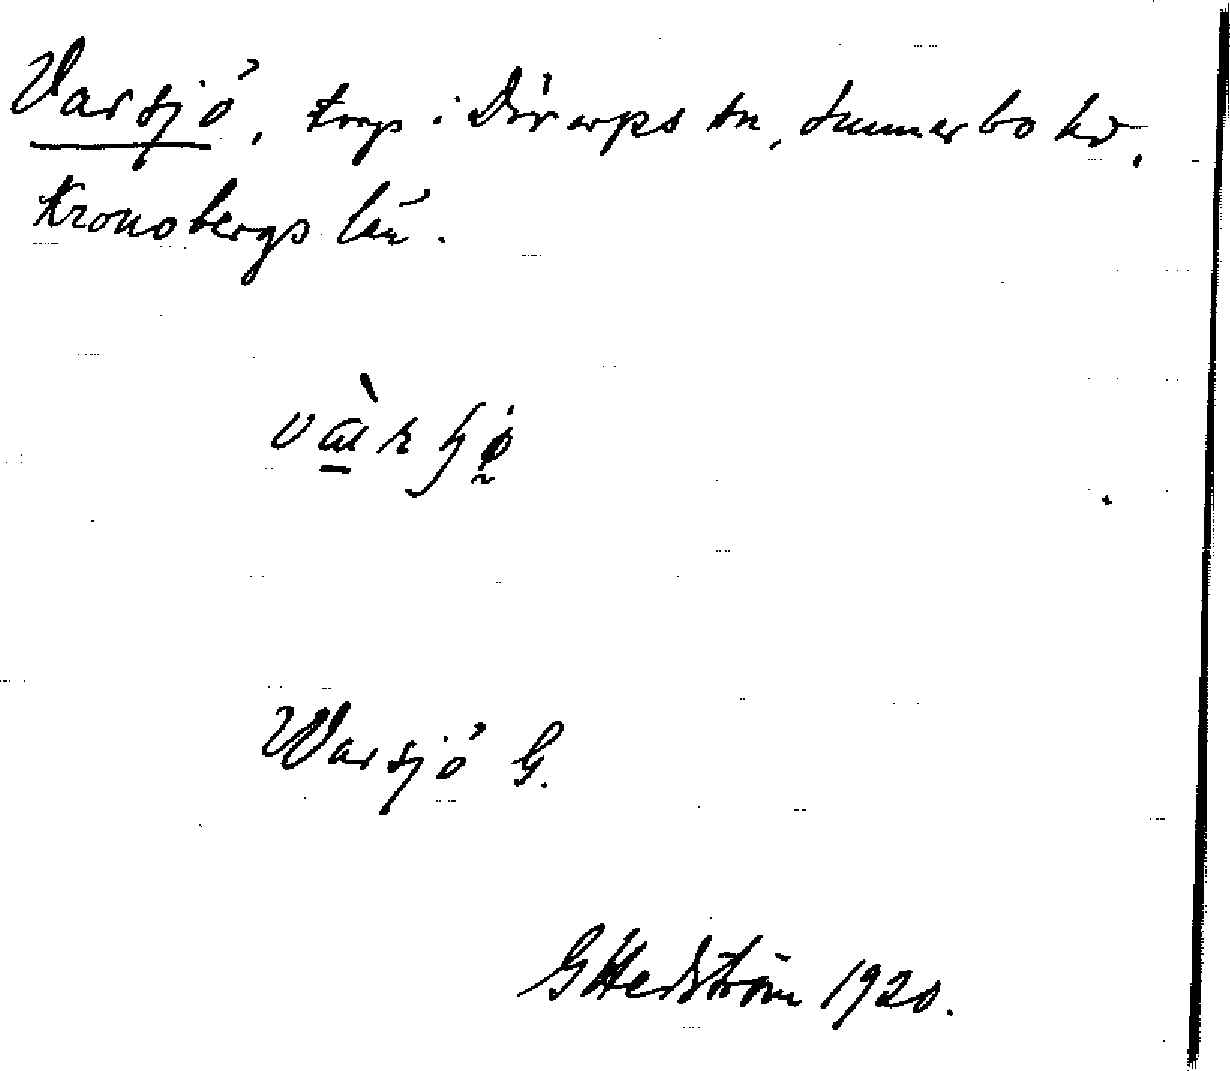 Varsjö, torp i Dörarps sn, Sunnerbo hd,
Kronobergs län.
Warsjö G.
GHedström 1920.